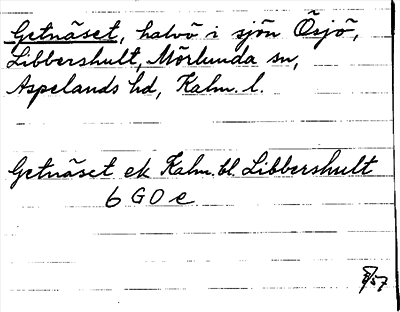 Getnäset, halvö i sjön Ösjö,
Libbershult, Mörlunda sn,
Aspelands hd, Kalm. l.
Getnäset ek Kalm. bl. Libbershult
6 G 0 e
57